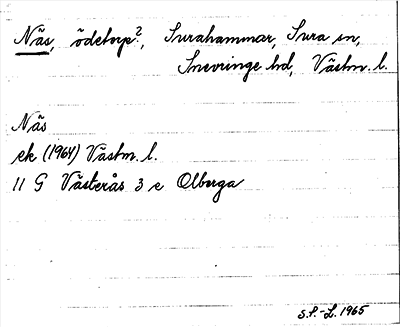 Näs, ödetorp?, Surahammar, Sura sn,
Snevringe hd, Västm. l.
Näs
ek (1964) Västm. l.
11 G Västerås 3 e Olberga
S.P.-L. 1965